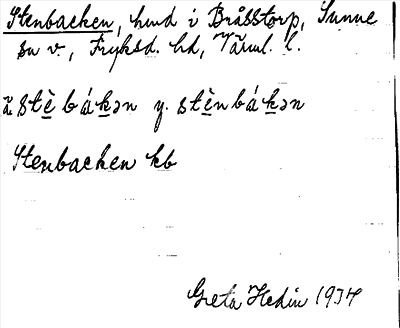 Stenbacken, hmd i Bråsstorp, Sunne
sn v., Fryksd. hd, Värml. l.
ä. stè bákən y. stènbákən
Stenbacken kb
Greta Hedin 1934